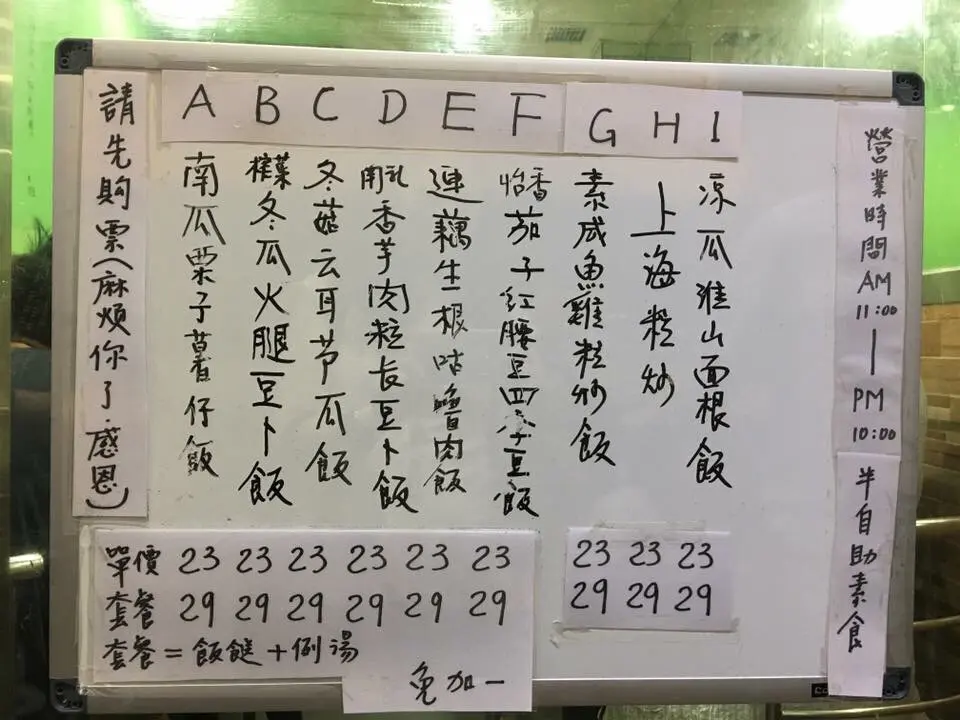 請先購票(麻煩你了感恩)
A B C D E F G H I
南瓜栗子薯仔飯
欖菜冬瓜火腿豆卜飯
冬菇云耳节瓜飯
南乳香芋肉粒长豆卜飯
連藕生根咕嚕肉飯
怡香茄子红腰豆四季豆飯
素咸魚雞粒炒飯
上海粗炒
凉瓜淮山面根飯
單價 23 23 23 23 23 23 23 23 23
套餐 29 29 29 29 29 29 29 29 29
套餐=飯餸+例湯
免加一
營業時間 AM 11:00 | PM 10:00
半自助素食